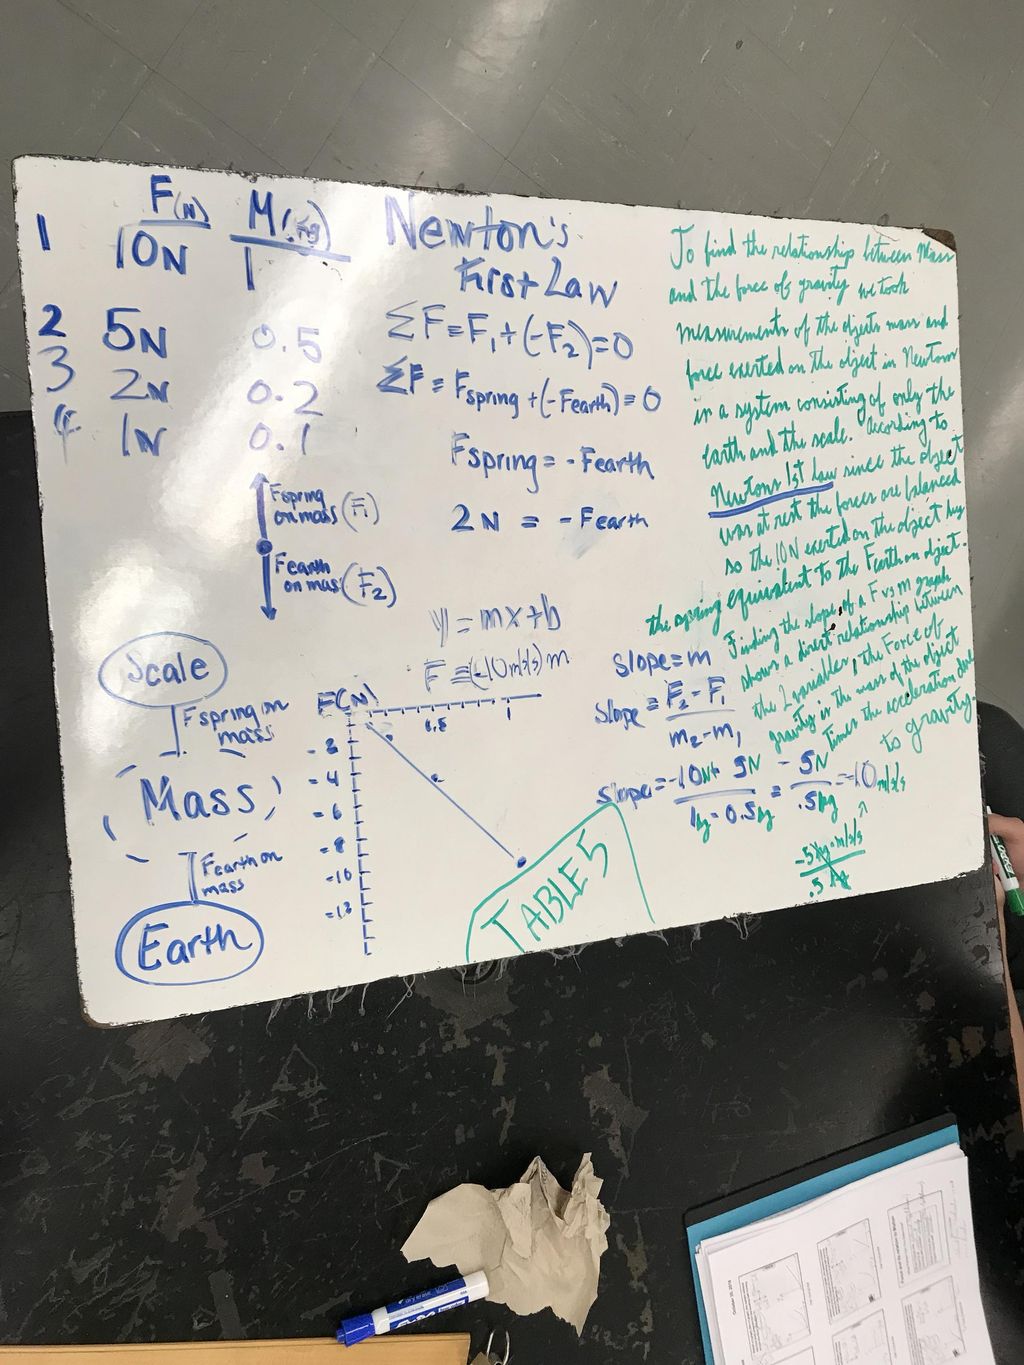 F(N) M(kg)
1 10N 1
2 5N 0.5
3 2N 0.2
4 1N 0.1
Newton's
First Law
ΣF = F1 + (-F2) = 0
ΣF = Fspring + (-Fearth) = 0
Fspring = -Fearth
2N = -Fearth
Fspring
on mass (F1)
Fearth
on mass (F2)
Scale
Fspring on
mass
Mass
Fearth on
mass
Earth
y = mx+b
F = (-10m/s/s)m
F(N)
1
-4
-6
-8
-10
-12
TABLE 5
slope = m
slope = F2 - F1
m2 - m1
slope = -10N + 5N = -5N = -10 m/s/s
1kg - 0.5kg .5kg
-5kg·m/s/s
.5kg
To find the relationship between Mass
and the force of gravity we took
measurements of the objects mass and
force exerted on the object in Newtons
in a system consisting of only the
earth and the scale. According to
Newtons 1st law since the object
was at rest the forces are balanced
so the 10N exerted on the object by
the spring equivalent to the Fearth on object.
Finding the slope of a F vs m graph
shows a direct relationship between
the 2 variables, the Force of
gravity is the mass of the object
times the acceleration due
to gravity.